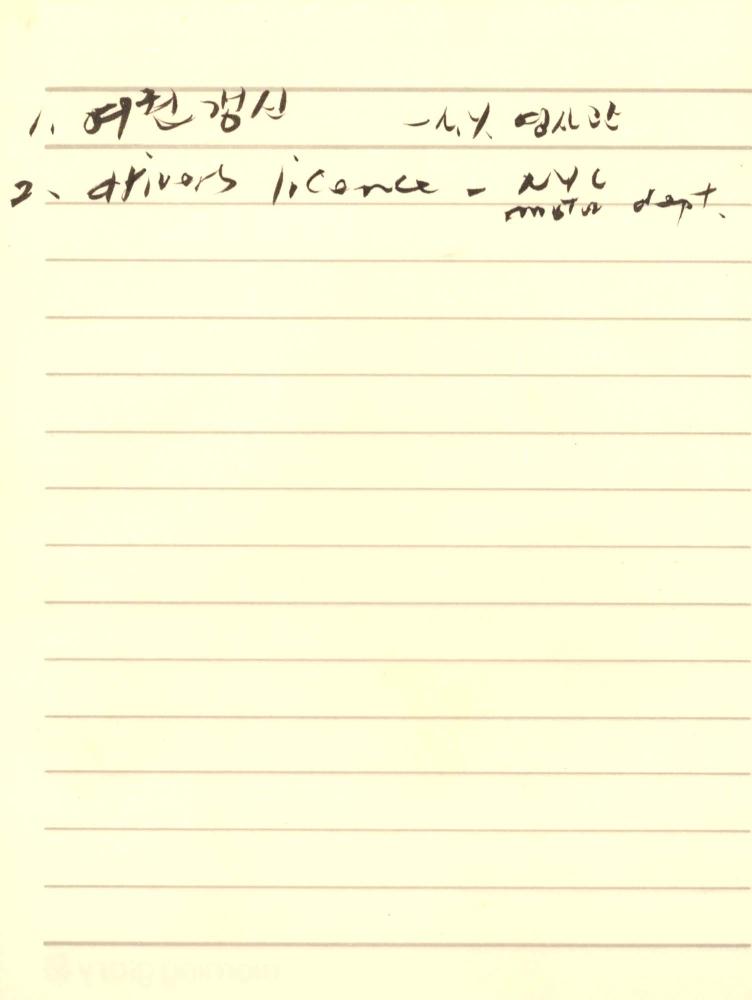 1. 여권 갱신 - N.Y. 영사관
2. drivers licence - NYC
motor dept.